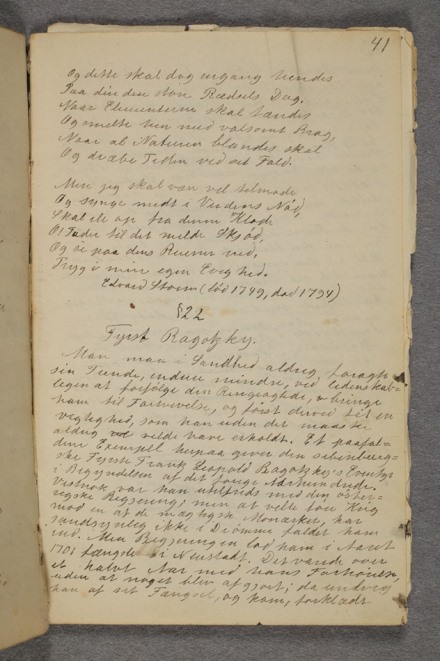 41
Og dette skal dog engang hendes
Paa din den store Rædsels Dag.
Naar Elementerne skal tændes
Og smelte hen med voldsomt Brag,
Naar al Naturen blandes skal
Og dræbe Tiden ved sit Fald.
Men jeg skal vel
Og synge midt i Verdens Nød,
Skal ile op fra denne Klode
Til det milde Skjød,
Og se paa dens Ruiner ned,
Tryg i min egen Evighed.
Edvard Storm (fød 1749, død 1794)
§22
Fyrst Ragotzky.
Man maa i Sandhed aldrig foragte
sin Fiende, endnu mindre, ved lidenskab-
ligen at forfølge den Ringeagtede, bringe
ham til Fortvivlelse, og først derved til en
Vegtighed, som han uden det maaske
aldrig vilde have erholdt. Et paafal-
dende Exempel herpaa giver den siebenbürg-
ske Fyrste Frank Leopold Ragotzky's Eventyr
i Begyndelsen af det forrige Aarhundrede.
Vistnok var han utilfreds med den øster-
rigske Regjering; men at ville føre Krig
mod en af de mægtigste Monarker, har
sandsynlig ikke i Drømme faldet ham
ind. Men Regjeringen lod ham i Aaret
1701 fængsle i Neustadt. Det varede over
et halvt Aar med hans Forhører,
uden at noget blev afgjort; da undveg
han af sit Fængsel, og kom, forklædt